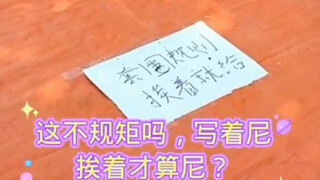 英国规则
挨着就给
这不规矩吗，写着尼
挨着才算尼？